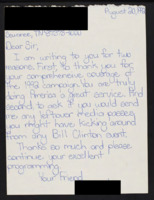 August 20, 19
Dear Sir,
I am writing to you for two
reasons. First, to thank you for
your comprehensive coverage of
the 1992 campaign. You are truly
doing America a great service. And
second, to ask if you would send
me any leftover media passes
you might have kicking around
from any Bill Clinton event.
Thanks so much and please
continue your excellent
programming.
Your Friend